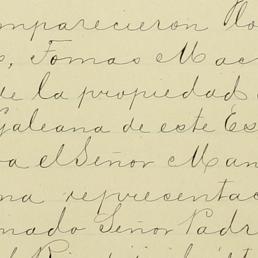 mparecieron Do
s, Tomas Mac
de la propiedad
Galeana de este Es
ra el Señor Man
na representac
nado Señor Padr